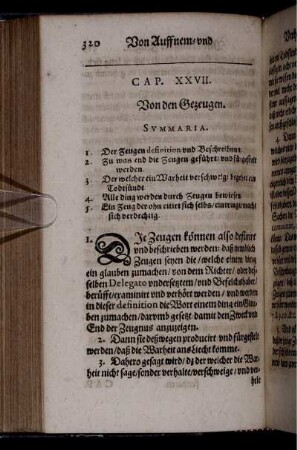 320 Von Auffnem/ vnd
CAP. XXVII.
Von den Gezeugen.
SVMMARIA.
1. Der Zeugen definition vnd Beschreibung
2. Zu was end die Zeugen geführt/ vnd fürgestelt
werden
3. Der welcher ein Warheit verschweigt/ begehet ein
Todtsünde
4. Alle ding werden durch Zeugen bewiesen
5. Ein Zeug der ohn citiert sich selbs macht
sich verdechtig.
1. DIe Zeugen können also definirt
vnd beschrieben werden: daß nemlich
Zeugen seyen die/ welche einem ding
ein glauben zumachen/ von dem Richter/ oder desselben
selben Delegato vndersetztem/ vnd Befelchshaber/
berüfft/ examinirt vnd verhört werden/ vnd werden
in dieser definition die Wort einem ding ein Glauben
ben zumachen/ darumb gesetzt damit den Zweck vnd
End der Zeugnus anzuzeigen.
2. Dann sie deßwegen producirt vnd fürgestelt
werden/ daß die Warheit ans Liecht komme.
3. Dahero gesagt wird/ dz der welcher die Warheit
heit nicht sage/ sonder verhalte/ verschweige/ vnd verhele
hele